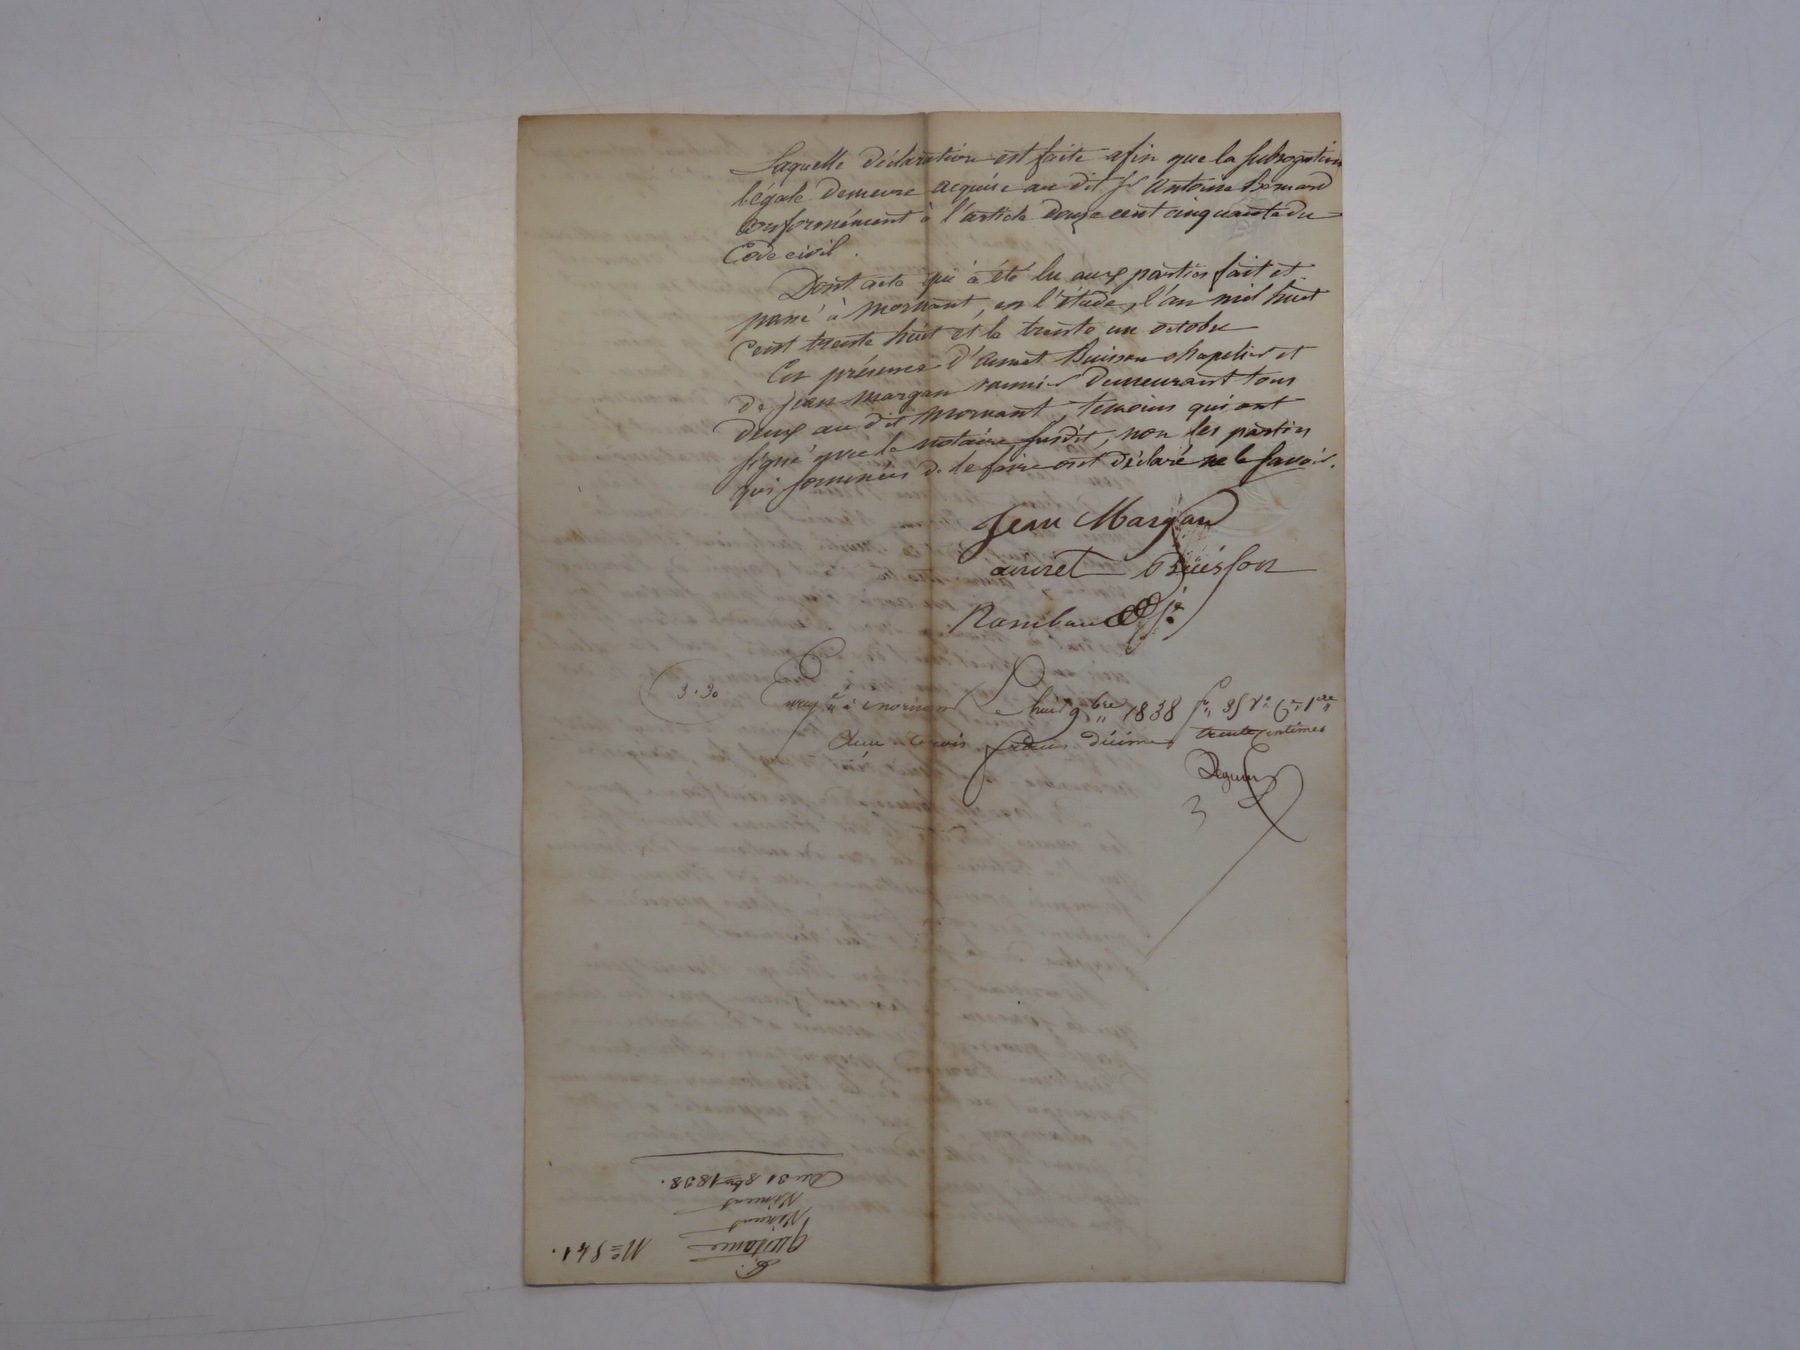 Laquelle déclaration est faite afin que la subrogation
légale demeure acquise au dit Sr Antoine Bonnard
conformément à l'article douze cent cinquante du
Code civil.
Dont acte qui a été lu aux parties fait et
passé à Mornant, en l'étude, l'an mil huit
cent trente huit et le trente un octobre
En présence d'annet Buisson chapelier et
de Jean Margan demeurant tous
deux au dit Mornant, témoins qui ont
signé avec le notaire susdit, non les parties
qui sommées de le faire ont déclaré ne le savoir.
Jean Margan
annet Buisson
Rambaud
3.30
Enregtré à mornant Le huit 9bre 1838 fo 35 Vo
trois francs décime trente centimes
3
Nº 541.
Quittance
Du 31 8bre 1838.